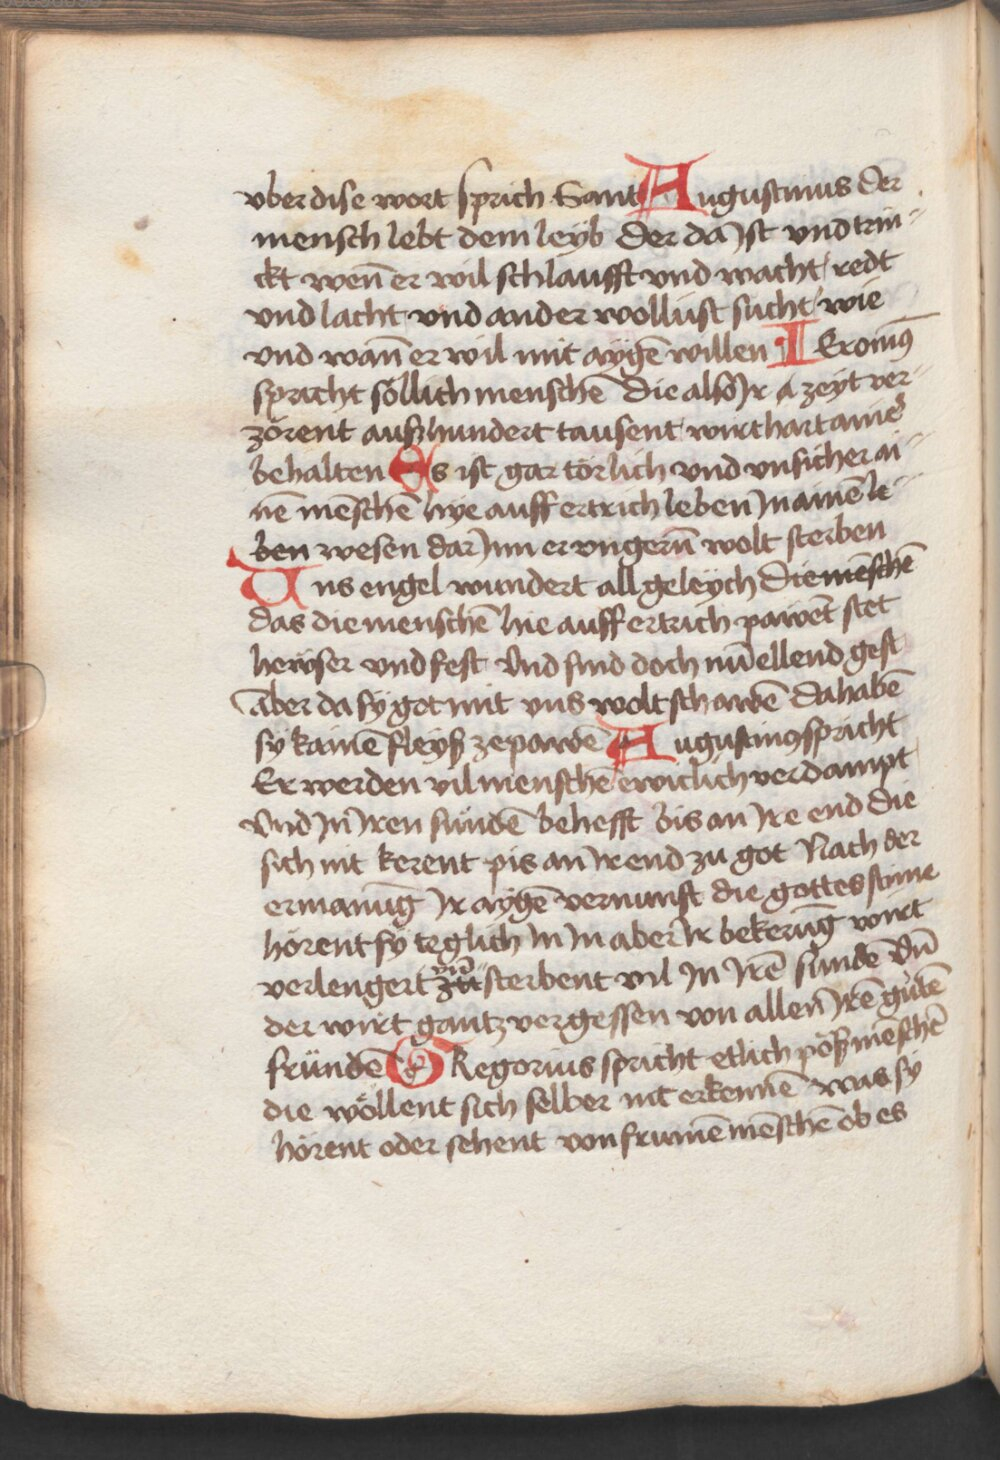 vber dise wort sprich Sant Augustinus der
mensch lebt dem leyb der da Jst vnd trin-
ckt weñ er wil schlaufft vnd wacht redt
vnd lacht vnd ander wollust sucht wie
vnd wañ er wil mit aygẽ willen IEronimꝰ
spricht söllich menschẽ die also Jr zeyt ver-
zörent auß hundert tausent wirt hart ainer
behalten Es ist gar törlich vnd vnsicher ai-
nẽ mẽschẽ hye auff ertrich leben Jn ainẽ le-
ben wesen dar Jnn er vngerñ wolt sterben
Uns engel wundert all geleych die mẽschẽ
das die menschẽ hie auff ertrich pawẽt stet
hewser vnd fest Vnd sind doch nũ ellend gest
aber da sy got mit vns wolt schawẽ da habẽ
sy kainẽ fleyß ze pawẽ Augustinꝰ spricht
Er werden vil menschẽ ewiclich verdampt
Vnd Jn Jren sündẽ behefft bis an Jre end die
sich nit kerent pis an Jr end zu got Nach der
ermanũg Jr aygẽ vernunft die gottes stime
hörent sy teglich Jn Jn aber Jr bekerũg wirt
verlengert vñ sterbent vil Jn Jrẽ sündẽ Vñ
der wirt gantz vergessen von allen Jrẽ gůtẽ
fründẽ GRegorius spricht etlich pöß mẽschẽ
die wöllent sich selber nit erkennẽ was sy
hörent oder sehent von frumẽ mẽschẽ ob es